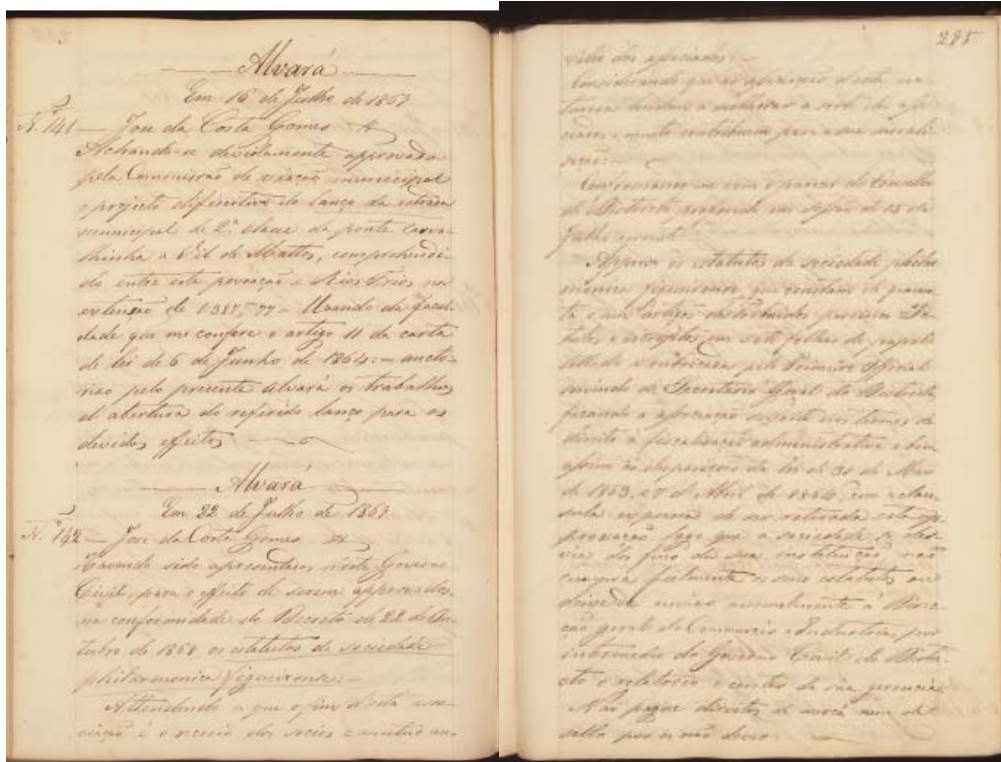 Alvará
Em 16 de Julho de 1869
N.º 141 — Jose da Costa Gomes &
Achando-se devidamente approvado
pela Commissão de viação municipal
o projecto difinitivo do lanço da estrada
municipal de 2.ª classe da ponte Carva-
lhinha a Vil de Mattos, comprehendi-
do entre esta povoação e Rios Frios na
extensão de 1:388,ᵐ77 — Usando da facul-
dade que me confere o artigo 11 da carta
de lei de 6 de Junho de 1864: — aucto-
riso pelo presente Alvará os trabalhos
d'abertura do referido lanço para os
devidos effeitos
Alvará
Em 22 de Julho de 1869
N.º 142 — Jose da Costa Gomes &
Havendo sido apresentados n'este Governo
Civil, para o effeito de serem approvados,
na conformidade do Decreto de 22 de Ou-
tubro de 1868 os estatutos da sociedade
philarmonica figueirense: —
Attendendo a que o fim d'esta asso-
ciação é o recreio dos socios e mutuo au-
285
xilio dos associados:
Considerando que as associações d'esta na-
tureza tendem a melhorar a sorte dos asso-
ciados e muito contribuem para a sua morali-
sação: —
Conformando-me com o parecer do Conselho
de Districto proferido em sessão de 15 de
Julho corrente
Approvo os estatutos da sociedade philar-
monica figueirense que constam de
e artigos distribuidos por
e escriptos em sete folhas de papel
sellado e rubricadas pelo Primeiro Official
servindo de Secretario Geral do Districto,
ficando a associação sujeita nos termos de
direito á fiscalisação administrativa e bem
assim ás disposições da lei de 30 de
de 1853, e 7 d'Abril de 1864, com a clau-
sula expressa de ser retirada esta ap-
provação logo que a sociedade se des-
vie dos fins da sua instituição, não
cumpra fielmente os seus estatutos ou
deixe de enviar annualmente á Direc-
ção geral do Commercio e Industria, por
intermedio do Governo Civil do Distri-
cto o relatorio e contas da sua gerencia.
Não pagou direitos de mercê nem de
sello por os não dever